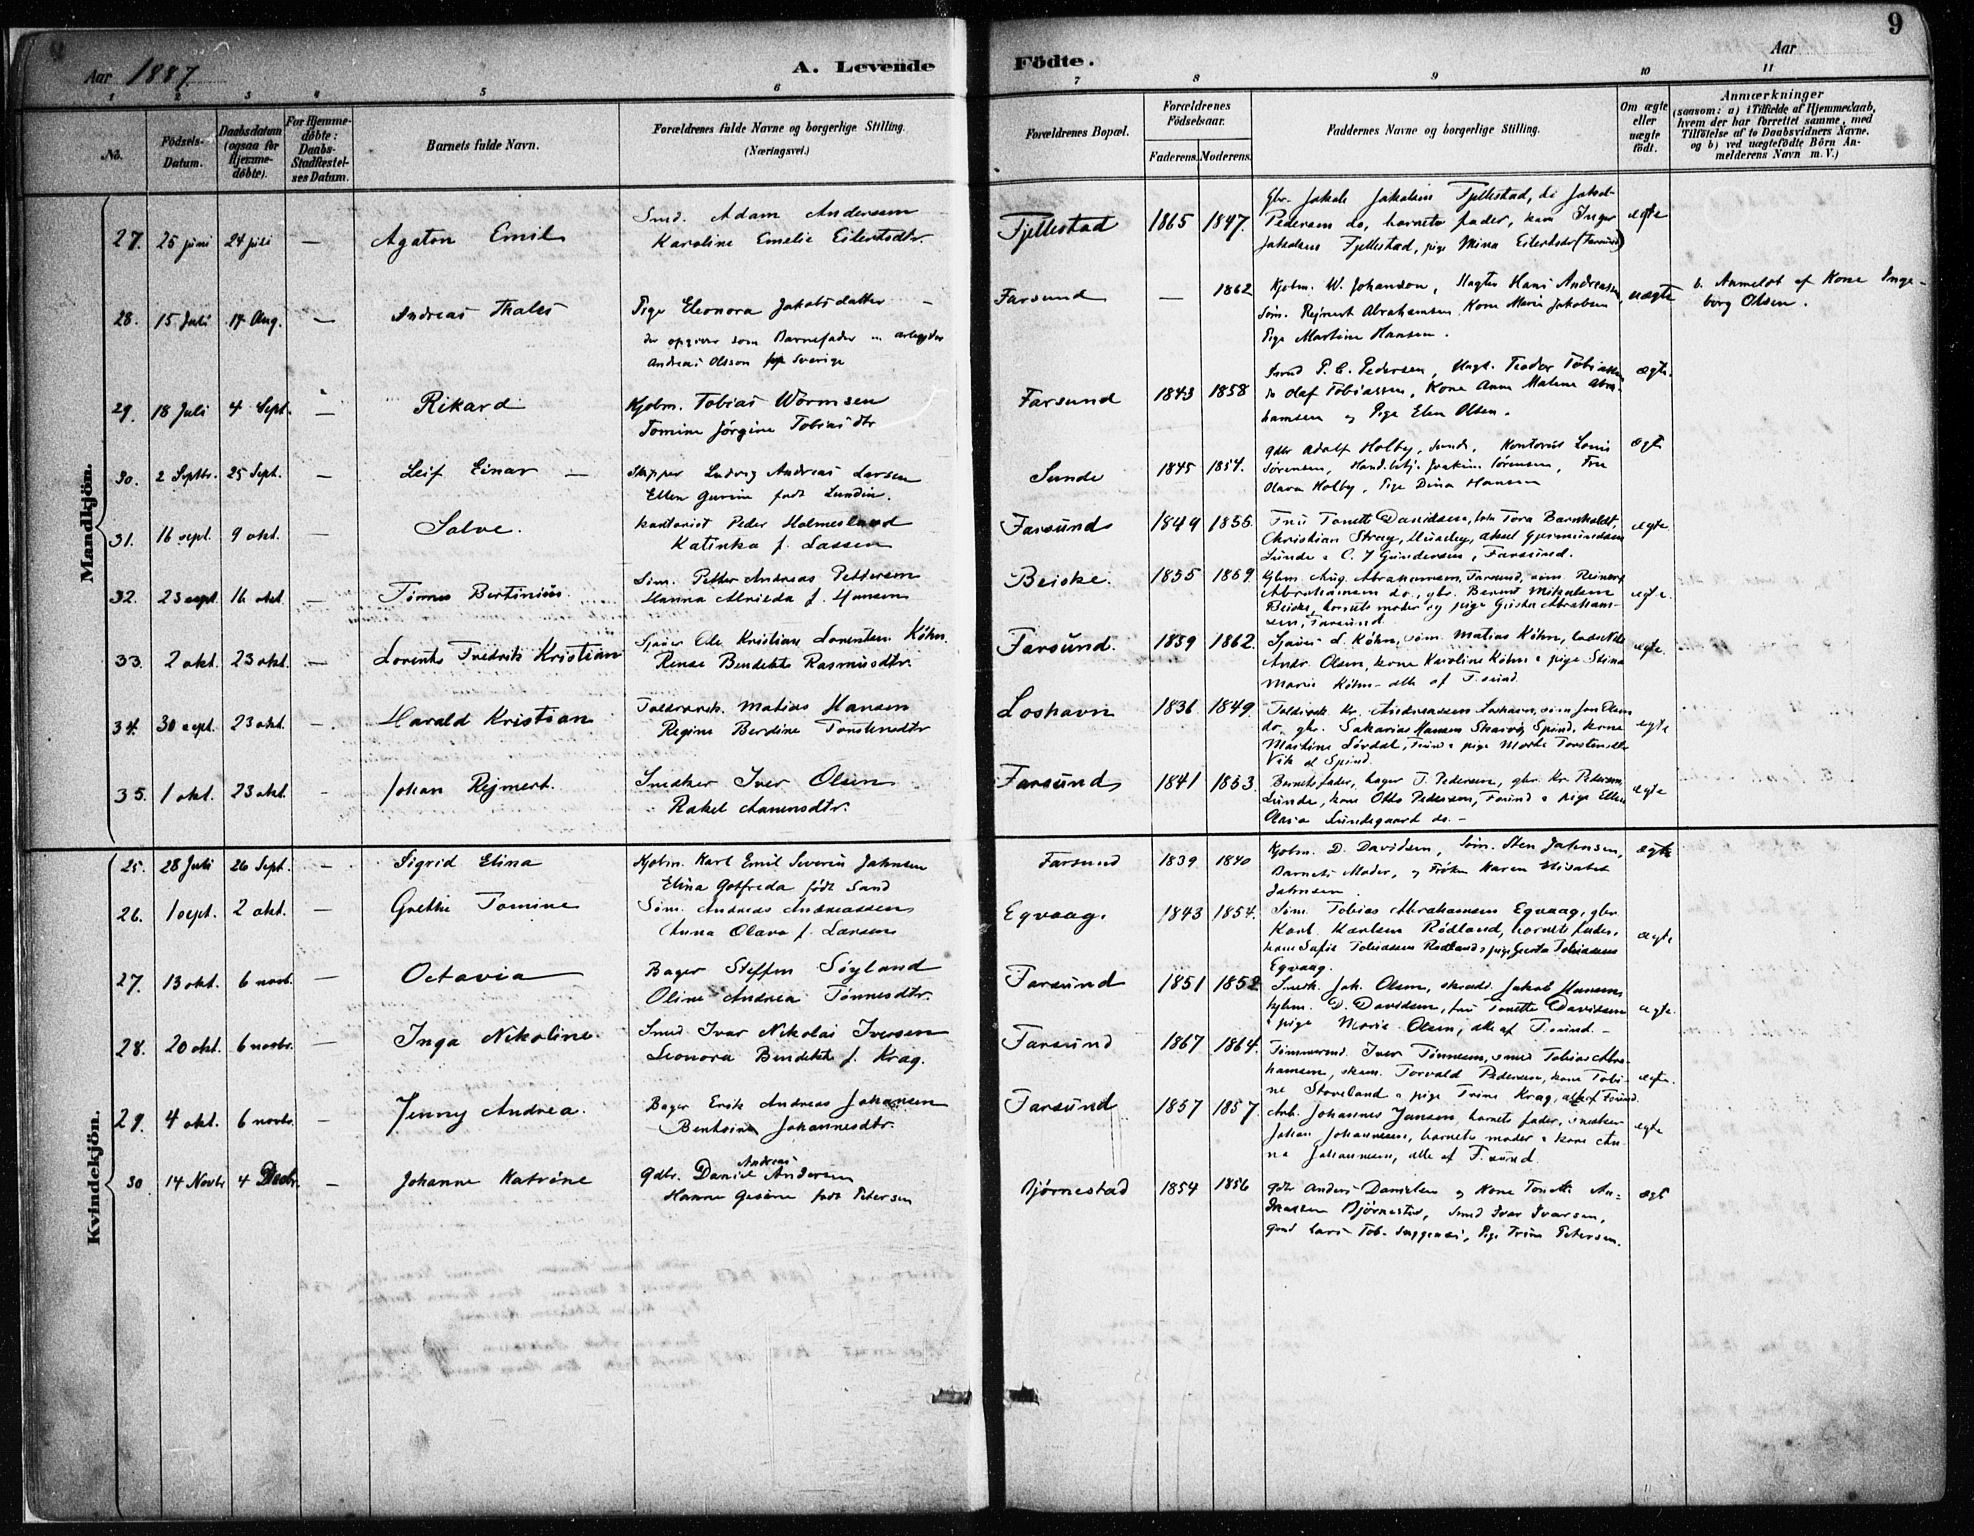 9
Aar 1887.
A. Levende Födte.
Aar
1 2 3 4 5 6 7 8 9 10 11
No.
Födsels-Datum.
Daabsdatum (ogsaa for Hjemme-döbte).
For Hjemme-döbte: Daabs-Stadfæstel-ses Datum.
Barnets fulde Navn.
Forældrenes fulde Navne og borgerlige Stilling.
(Næringsvei.)
Forældrenes Bopæl.
Forældrenes Födselsaar.
Faderens. Moderens.
Faddernes Navne og borgerlige Stilling.
Om ægte eller uægte födt.
Anmærkninger
(saasom: a) i Tilfælde af Hjemmedaab, hvem der har forrettet samme, med Tilföielse af to Daabsvidners Navne, og b) ved uægtefödte Börn An-melderens Navn m. V.)
Mandkjön.
27. 25 juni 24 juli — Agaton Emil
Smd. Adam Andersen
Karoline Emelie Eilertsdtr.
Fjellestad 1865 1847.
Gbr. Jakob Jakobsen Fjellestad, do Jakob
Pedersen do, barnets fader, kone Inger
Jakobsen Fjellestad, pige Mina Eilertsdtr (Farsund)
egte
28. 15 Juli 14 Aug. — Andreas Thales
Pige Eleonora Jakobsdatter —
der opgiver som Barnefader arbeyder
Andreas Olsson Sverige
Farsund — 1862
Kjøbm. W. Johanson, Ungkr Hans Andreassen,
Søm. Rejnert Abrahamsen, Kone Marie Jakobsen
Pige Martine Hansen.
uægte
b. Anmeldt af Kone Inge-
borg Olsen.
29. 18 Juli 4 Sept. — Rikard
Kjøbm. Tobias Wormsen
Tomine Jørgine Tobiasdtr
Farsund 1843 1858
Smd P. C. Pedersen, Ungk. Teodor Tobiassen
do Olaf Tobiassen, Kone Anne Malene Abra-
hamsen og Pige Elen Olsen.
ægte
30. 2 Septbr. 25 Sept. — Leif Einar —
Skipper Ludvig Andreas Larsen
Ellen Gurine født Lundin.
Sunde 1845 1854.
Gdbr Adolf Holby, Sunde, Kontorist Louis
Sørensen, Handelsbtj. Joakim Sørensen, Fru
Olava Holby, Pige Dina Hansen
ægte
31. 16 sept. 9 okt. — Salve.
Kontorist Peder Holmesland
Katinka f. Lassen
Farsund 1849 1855.
Fru Tonette Davidsen, Tora Barnholdt,
Christian Stray, Aksel Gjermundsen
Lunde & C. J Gundersen, Farsund.
egte
32. 23 sept 16 okt — Tønnes Bertinius.
Søm. Petter Andreas Pettersen
Hanna Alvilda f. Hansen
Beiske. 1855 1859
Kjbm. Aug. Abrahamsen, Farsund, søm. Reinert
Abrahamsen do., gbr. Bernt Mikalsen
Beiske, barnets moder og pige Gusta Abraham-
sen, Farsund.
egte.
33. 2 okt. 23 okt. — Lorents Fredrik Kristian
Sjauer Ole Kristian Lorentsen Köhn.
Rense Bendekte Rasmusdtr.
Farsund. 1859 1862.
Sjauer L. Köhn, søm. Matias Köhn, lods Nils
Andr. Olsen, kone Karoline Köhn & pige Stina
Marie Köhn — alle af F.sund.
egte.
34. 30 sept. 23 okt. — Harald Kristian
Toldrorsk. Matias Hansen
Regine Berdine Torstensdtr
Loshavn 1836 1849.
Toldrorsk. Kr. Andreassen Loshavn, søm Jon Olsen
do, gbr. Sakarias Hansen Skarvøy Spind, kone
Martine Lövdal, F.sund & pige Marte Torstensdtr
Vik af Spind.
egte
35. 1 okt. 23 okt. — Johan Rejmert.
Snedker Iver Olsen
Rakel Aanensdtr.
Farsund 1841 1853.
Barnets fader, bager T. Pedersen, gbr Kr. Pedersen
Lunde, kone Otto Pedersen, F.sund & pige Ellen
Olava Lundegaard do. —
egte
Kvindekjön.
25. 28 Juli 26 Sept. — Sigrid Elina
Kjøbm. Karl Emil Severin Jahnsen
Elina Gotfreda født Sand
Farsund 1839 1840
Kjøbm. D. Davidsen, Søm. Sten Jahnsen,
Barnets Moder, og Frøken Karen Elisabet
Jahnsen
ægte
26. 1 sept. 2 okt. — Grethe Tomine
Søm. Andreas Andreassen
Anna Olava f. Larsen
Egvaag. 1843 1854.
Søm. Tobias Abrahamsen Egvaag, gbr.
Karl Karlsen Rødland, barnets fader,
kone Sofie Tobiassen Rødland & pige Gusta Tobiassen
Egvaag.
ægte
27. 13 okt. 6 novb. — Octavia
Bager Steffen Søyland
Oline Andrea Tönnesdtr.
Farsund 1851 1852
Snedk. Joh. Olsen, skræd. Jakob Hansen,
kjbm. D. Davidsen, fru Tonette Davidsen
& pige Marie Olsen, alle af F.sund. —
egte.
28. 20 okt. 6 novbr. — Inga Nikoline.
Smed Ivar Nikolai Iversen
Leonora Bendekte f. Krag.
Farsund 1867 1864.
Tømmermd. Iver Tönnesen, smed Tobias Abra-
hamsen, skom. Torvald Pedersen, kone Tobi-
ne Stoveland & pige Trine Krag, alle af F.sund.
egte.
29. 4 okt. 6 novbr. — Jenny Andrea.
Bager Erik Andreas Johansen
Bentsine Johannesdtr.
Farsund 1857 1857.
Arb. Johannes Jansen, barnets fader, snedker
Johan Johannesen, barnets moder & kone An-
na Johannesen, alle af F.sund.
egte
30 14 Novbr 4 Decbr. — Johanne Katrine
Gdbr. Daniel Andreas Andersen
Hanne Gesine født Petersen
Bjørnestad 1854 1856
Gdbr Anders Danielsen og Kone Tonette An-
dreassen Bjørnestad, Smed Ivar Ivarsen,
Lars Tob. , Pige Trine Petersen.
ægte